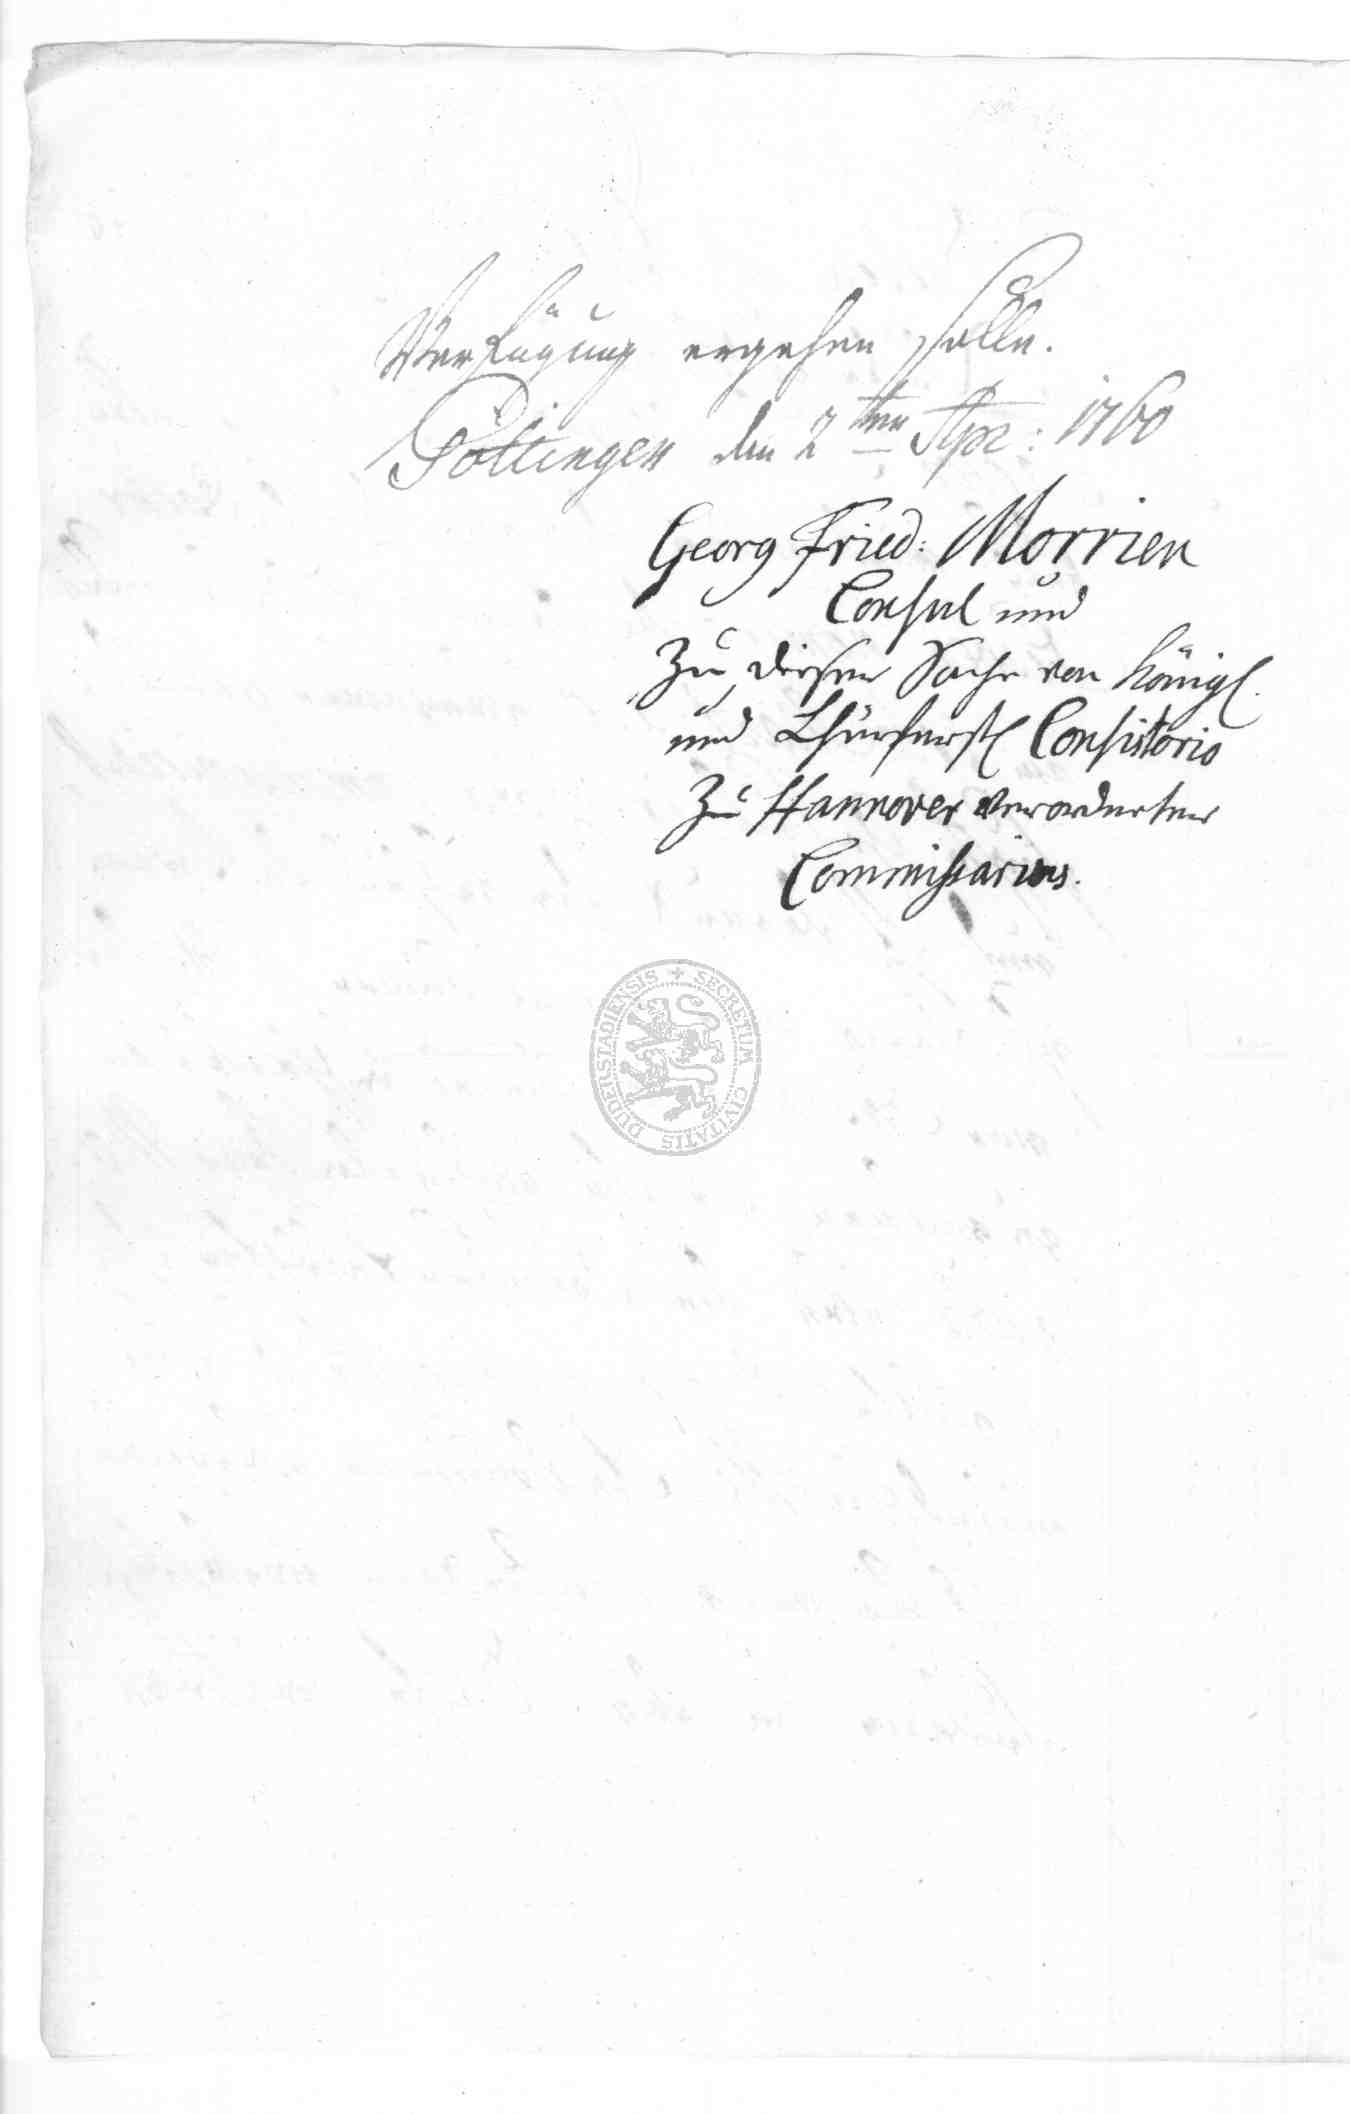 Verfügung ergehen solle.
Göttingen den 2ten Apr: 1760
Georg Fried: Morrien
Consul und
Zu dieser Sache von Königl.
und Churfürstl Consistorio
Zu Hannover verordneter
Commissarius.
SECRETUM CIVITATIS DUDERSTADIENSIS